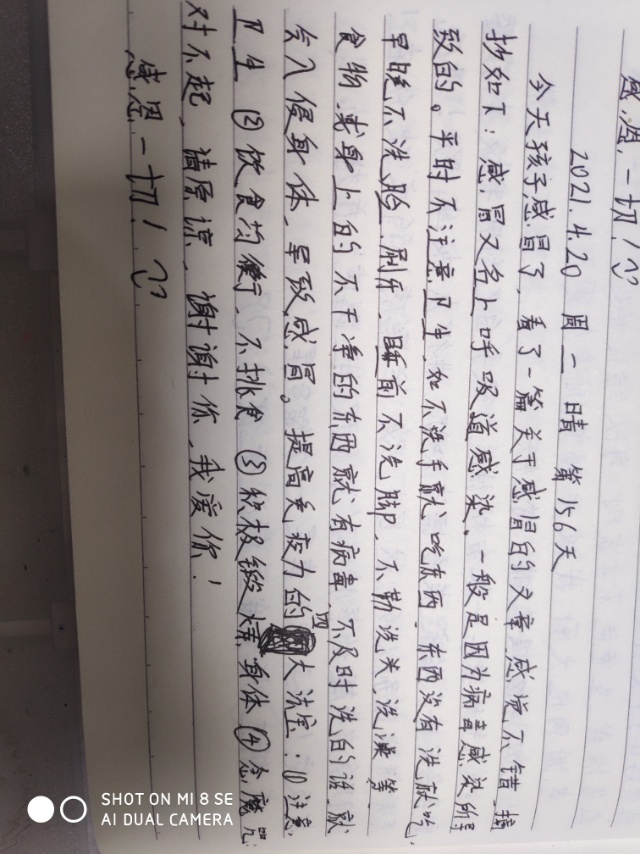 感恩一切!
2021.4.20 周一 晴 第156天
今天孩子感冒了,看了一篇关于感冒的文章感觉不错,摘
抄如下:感冒又名上呼吸道感染,一般是因为病毒感染所导
致的。平时不注意卫生,如不洗手就吃东西,东西没有洗就吃,
早晚不洗脸、刷牙,睡前不洗脚,不勤洗头、洗澡等,
食物或身上的不干净的东西就有病毒,不及时洗的话,就
会入侵身体,导致感冒。提高免疫力的四大法宝:①注意
卫生 ②饮食均衡,不挑食 ③积极锻炼身体 ④念魔咒:
对不起,请原谅,谢谢你,我爱你!
感恩一切!
SHOT ON MI 8 SE
AI DUAL CAMERA